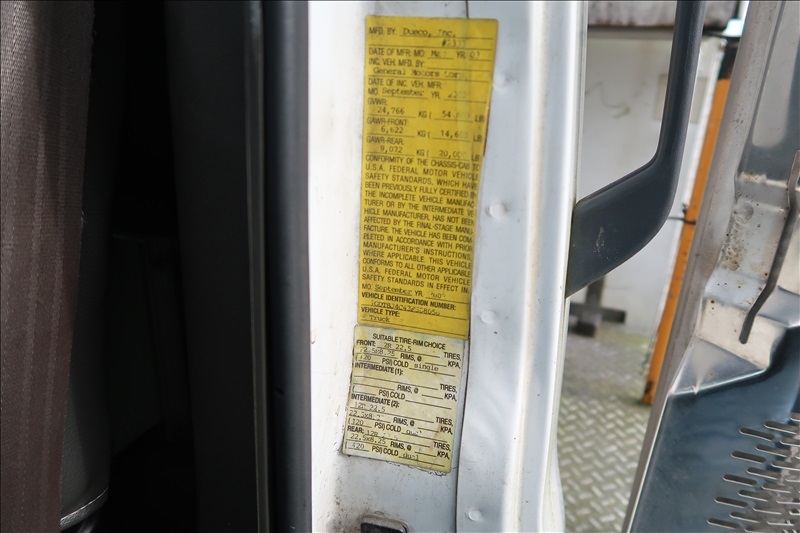 MFD. BY: Dueco, Inc.
DATE OF MFR. MO. YR. 07
INC. VEH. MFD. BY:
General Motors
DATE OF INC. VEH. MFR.
MO. September YR.
GVWR:
24,766 KG ( 54, LB
GAWR-FRONT:
6,622 KG ( 14,6 LB
GAWR-REAR:
9,072 KG ( 20,0 LB
CONFORMITY OF THE CHASSIS-CAB TO
U.S.A. FEDERAL MOTOR VEHICLE
SAFETY STANDARDS, WHICH HAVE
BEEN PREVIOUSLY FULLY CERTIFIED BY
THE INCOMPLETE VEHICLE MANUFAC-
TURER OR BY THE INTERMEDIATE VE-
HICLE MANUFACTURER, HAS NOT BEEN
AFFECTED BY THE FINAL-STAGE MANU-
FACTURE. THE VEHICLE HAS BEEN COM-
PLETED IN ACCORDANCE WITH PRIOR
MANUFACTURER'S INSTRUCTIONS,
WHERE APPLICABLE. THIS VEHICLE
CONFORMS TO ALL OTHER APPLICABLE
U.S.A. FEDERAL MOTOR VEHICLE
SAFETY STANDARDS IN EFFECT IN
MO. September YR.
VEHICLE IDENTIFICATION NUMBER:
VEHICLE TYPE:
Truck
SUITABLE TIRE-RIM CHOICE
FRONT: 12R 22.5 TIRES,
22.5x8.25 RIMS, @ KPA,
(120 PSI) COLD single
INTERMEDIATE (1):
TIRES,
RIMS, @ KPA,
( PSI) COLD
INTERMEDIATE (2):
12R 22.5 TIRES,
22.5x8. RIMS, @ KPA,
(120 PSI) COLD dual
REAR: 12R TIRES,
22.5x8.25 RIMS, @ KPA,
(120 PSI) COLD dual